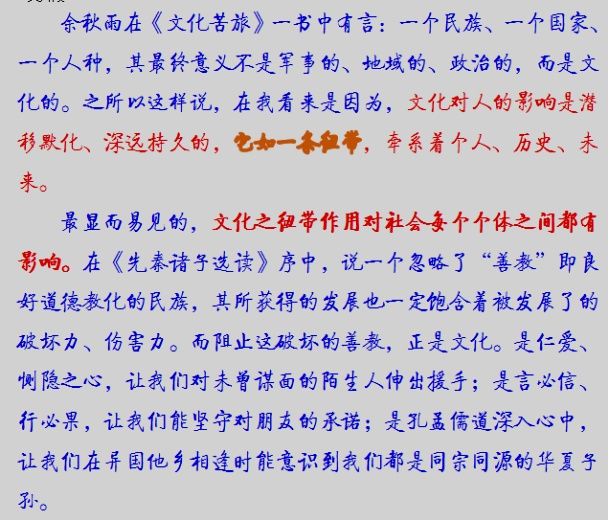 余秋雨在《文化苦旅》一书中有言：一个民族、一个国家、
一个人种，其最终意义不是军事的、地域的、政治的，而是文
化的。之所以这样说，在我看来是因为，文化对人的影响是潜
移默化、深远持久的，它如一条纽带，牵系着个人、历史、未
来。
最显而易见的，文化之纽带作用对社会每个个体之间都有
影响。在《先秦诸子选读》序中，说一个忽略了“善教”即良
好道德教化的民族，其所获得的发展也一定饱含着被发展了的
破坏力、伤害力。而阻止这破坏的善教，正是文化。是仁爱、
恻隐之心，让我们对未曾谋面的陌生人伸出援手；是言必信、
行必果，让我们能坚守对朋友的承诺；是孔孟儒道深入心中，
让我们在异国他乡相逢时能意识到我们都是同宗同源的华夏子
孙。